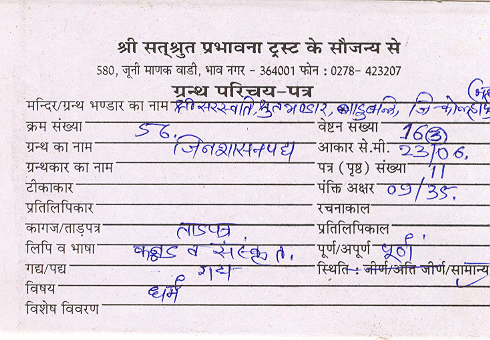 श्री सत्‌श्रुत प्रभावना ट्रस्ट के सौजन्य से
580, जूनी माणक वाडी, भाव नगर - 364001 फोन : 0278- 423207
ग्रन्थ परिचय-पत्र
मन्दिर/ग्रन्थ भण्डार का नाम श्री सरस्वति श्रुत भण्डार, जि-कोल्हापुर
क्रम संख्या 56. वेष्टन संख्या 16(3)
ग्रन्थ का नाम जिनशासनपद्य आकार से.मी. 23/06.
ग्रन्थकार का नाम पत्र (पृष्ठ) संख्या 11
टीकाकार पंक्ति अक्षर 09/35.
प्रतिलिपिकार रचनाकाल
कागज/ताडपत्र ताडपत्र प्रतिलिपिकाल
लिपि व भाषा कन्नड व संस्कृत. पूर्ण/अपूर्ण पूर्ण
गद्य/पद्य गद्य स्थिति : जीर्ण/अति जीर्ण/सामान्य
विषय धर्म
विशेष विवरण